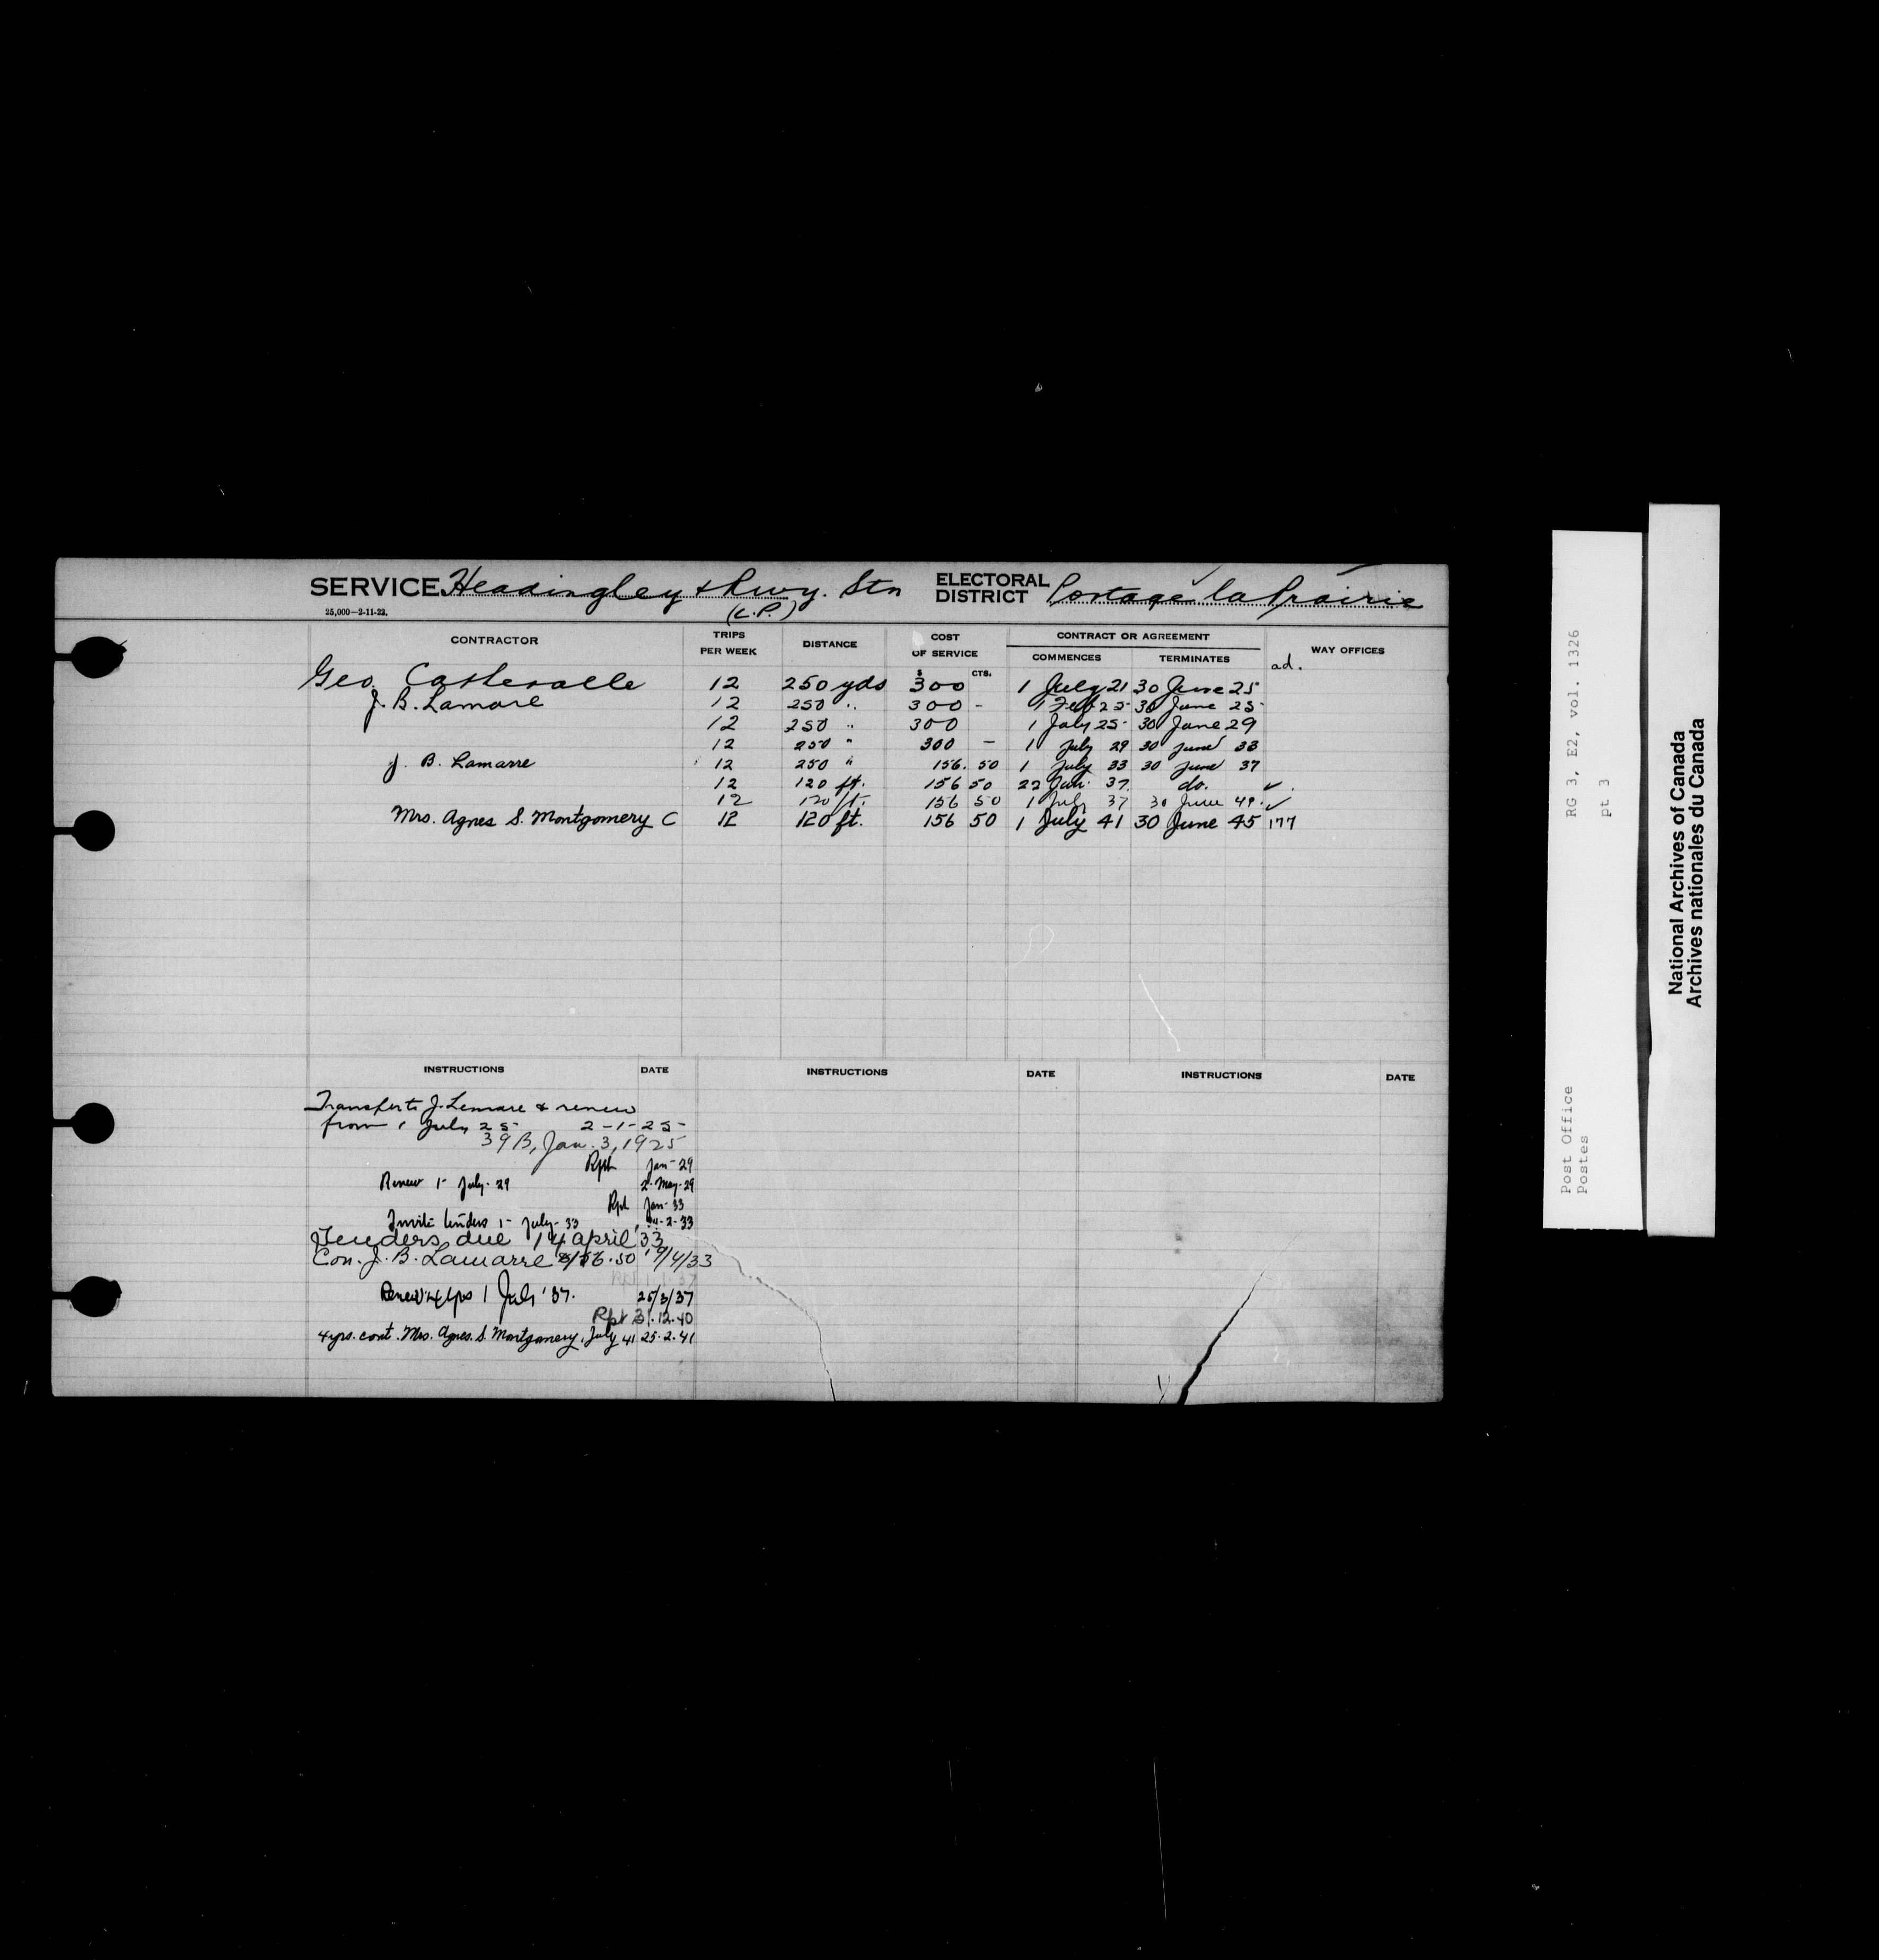 SERVICE Headingley & Rwy. Stn ELECTORAL DISTRICT Portage la Prairie
25,000—2-11-22. (C.P.)
CONTRACTOR TRIPS PER WEEK DISTANCE COST OF SERVICE CONTRACT OR AGREEMENT WAY OFFICES
COMMENCES TERMINATES ad.
$ CTS.
Geo. 12 250 yds 300 1 July 21 30 June 25
J. B. Lamare 12 250 " 300 - 1 Feb 25 30 June 25
12 250 " 300 1 July 25 30 June 29
12 250 " 300 — 1 July 29 30 June 33
J. B. Lamarre 12 250 " 156. 50 1 July 33 30 June 37
12 120 ft. 156 50 22 Jan. 37. do. ✓.
12 120 ft. 156 50 1 July 37 30 June 41. ✓
Mrs. Agnes S. Montgomery C 12 120 ft. 156 50 1 July 41 30 June 45 177
INSTRUCTIONS DATE INSTRUCTIONS DATE INSTRUCTIONS DATE
Transfer to J. Lemare & renew
from 1 July 25 2-1-25
39B, Jan. 3, 1925
Rpt Jan-29
Renew 1- July-29 2-May-29
Rpt Jan-33
Invite tenders 1- July-33 -2-33
Tenders due 14 April '33
Con. J. B. Lamarre $156.50 19/4/33
Renew 4 yrs 1 July '37. 25/3/37
Rpt 31.12.40
4 yrs. cont. Mrs. Agnes. S. Montgomery, July 41 25.2.41
Post Office
Postes
RG 3, E2, vol. 1326
pt 3
National Archives of Canada
Archives nationales du Canada